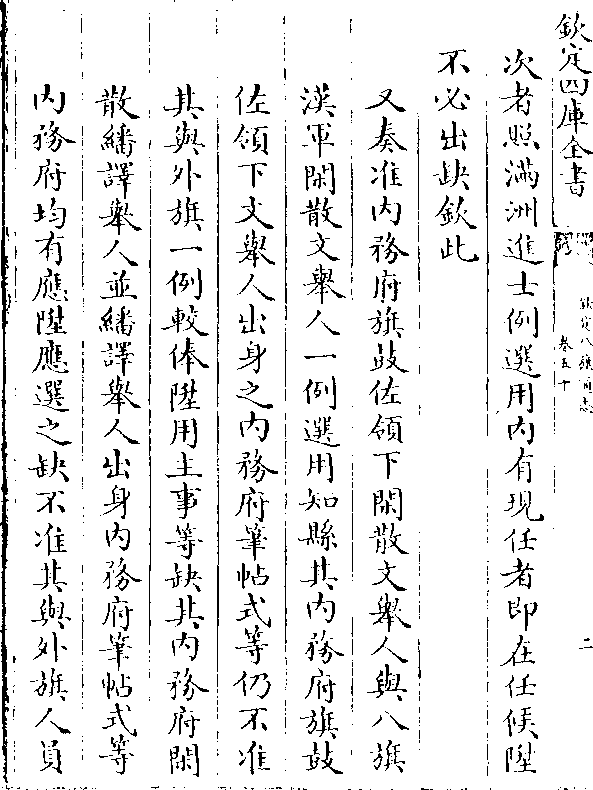 欽定四庫全書
欽定八旗通志
卷五十
二
次者照滿洲進士例選用内有現任者即在任候陞
不必出缺欽此
又奏准内務府旗鼓佐領下閑散文舉人與八旗
漢軍閑散文舉人一例選用知縣其内務府旗鼓
佐領下文舉人出身之内務府筆帖式等仍不准
其與外旗一例較俸陞用主事等缺其内務府閑
散繙譯舉人並繙譯舉人出身内務府筆帖式等
内務府均有應陞應選之缺不准其與外旗人員